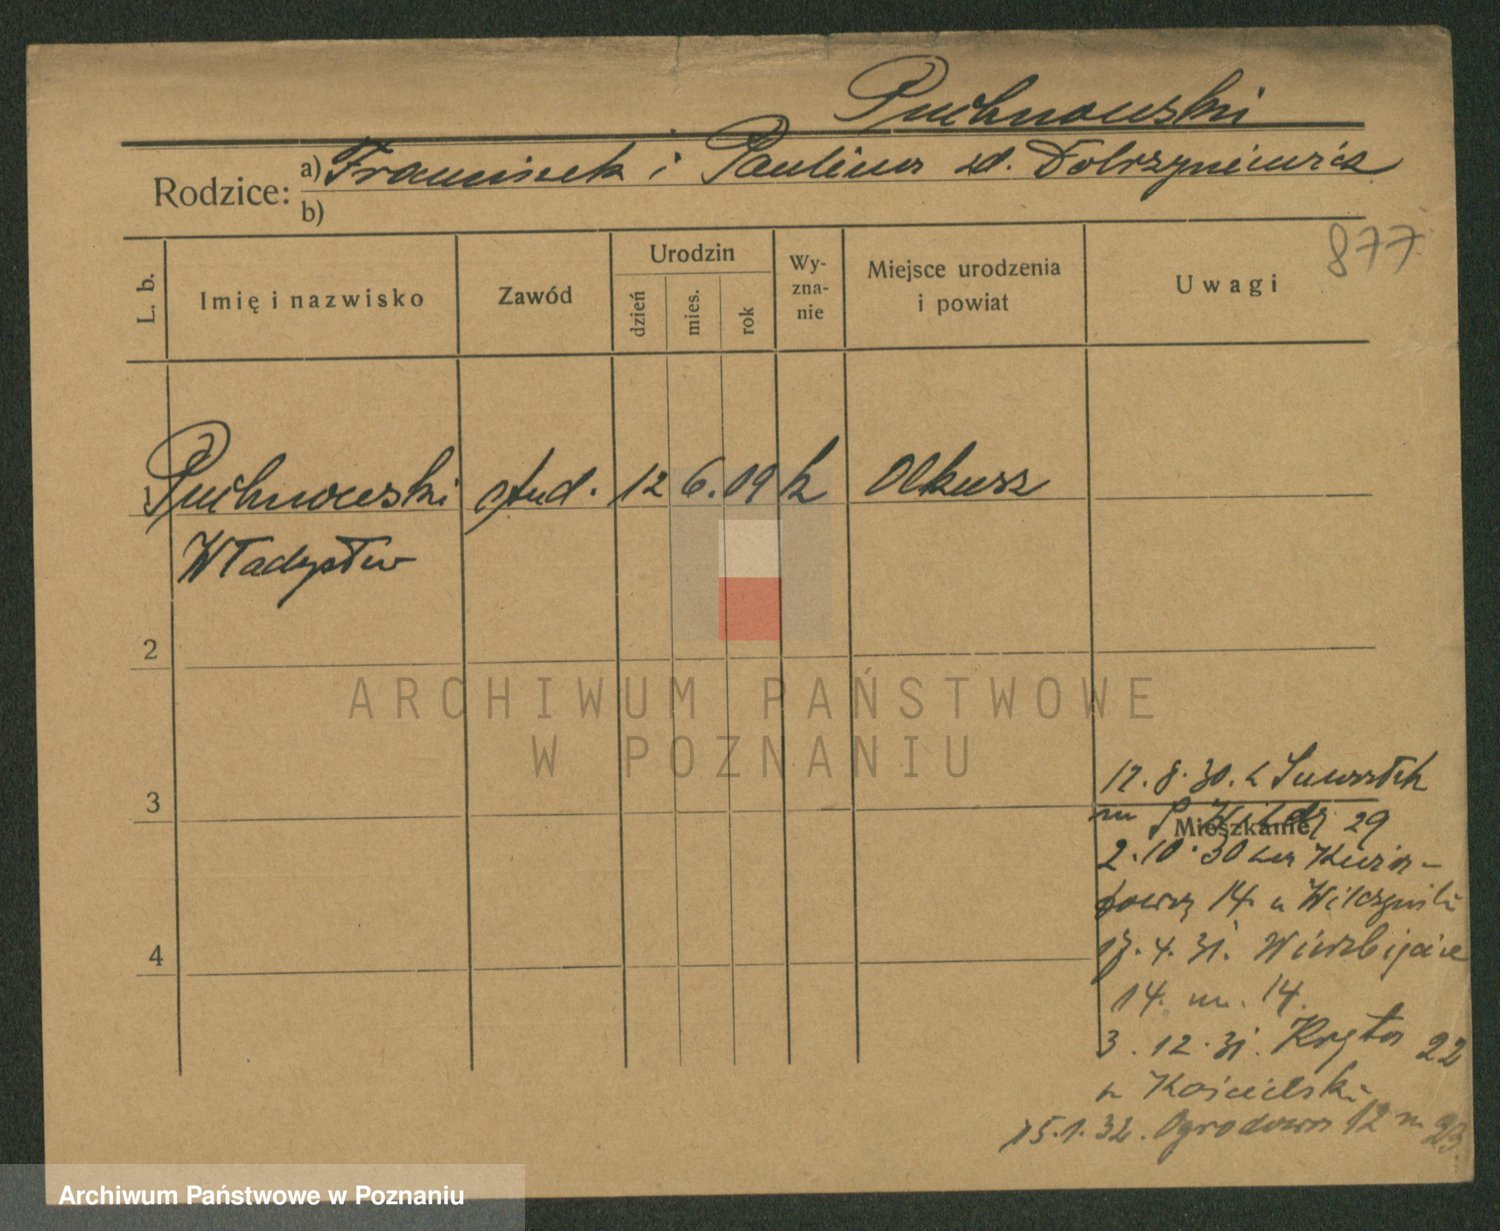 Puchnowski
Rodzice: a) Franciszek i Paulina zd. Dobrzyniewicz
b)
877
L. b. Imię i nazwisko Zawód Urodzin dzień mies. rok Wyznanie Miejsce urodzenia i powiat Uwagi
1 Puchnowski stud. 12 6. 09 k Olkusz
Władysław
2
ARCHIWUM PAŃSTWOWE
W POZNANIU
3
17. 8. 30. z Suwałek
Mieszkanie
29
2. 10. 30
14. u Wilczyński
4
17. 4. 31. Wierzbięcice
14. m. 14.
3. 12. 31. Kręta 22
u Kościelski
15. 1. 32. Ogrodowa 12 m 23.
Archiwum Państwowe w Poznaniu